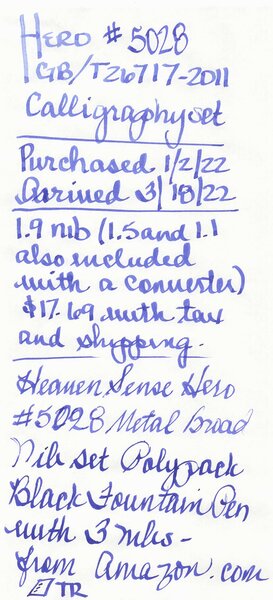 Hero #5028
GB/T26717-2011
Calligraphy set
Purchased 1/2/22
Arrived 3/18/22
1.9 nib (1.5 and 1.1
also included
with a converter)
$17.69 with tax
and shipping.
Heaven Sense Hero
#5028 Metal Broad
Nib set Polypack
Black Fountain Pen
with 3 nibs -
from Amazon.com
TR